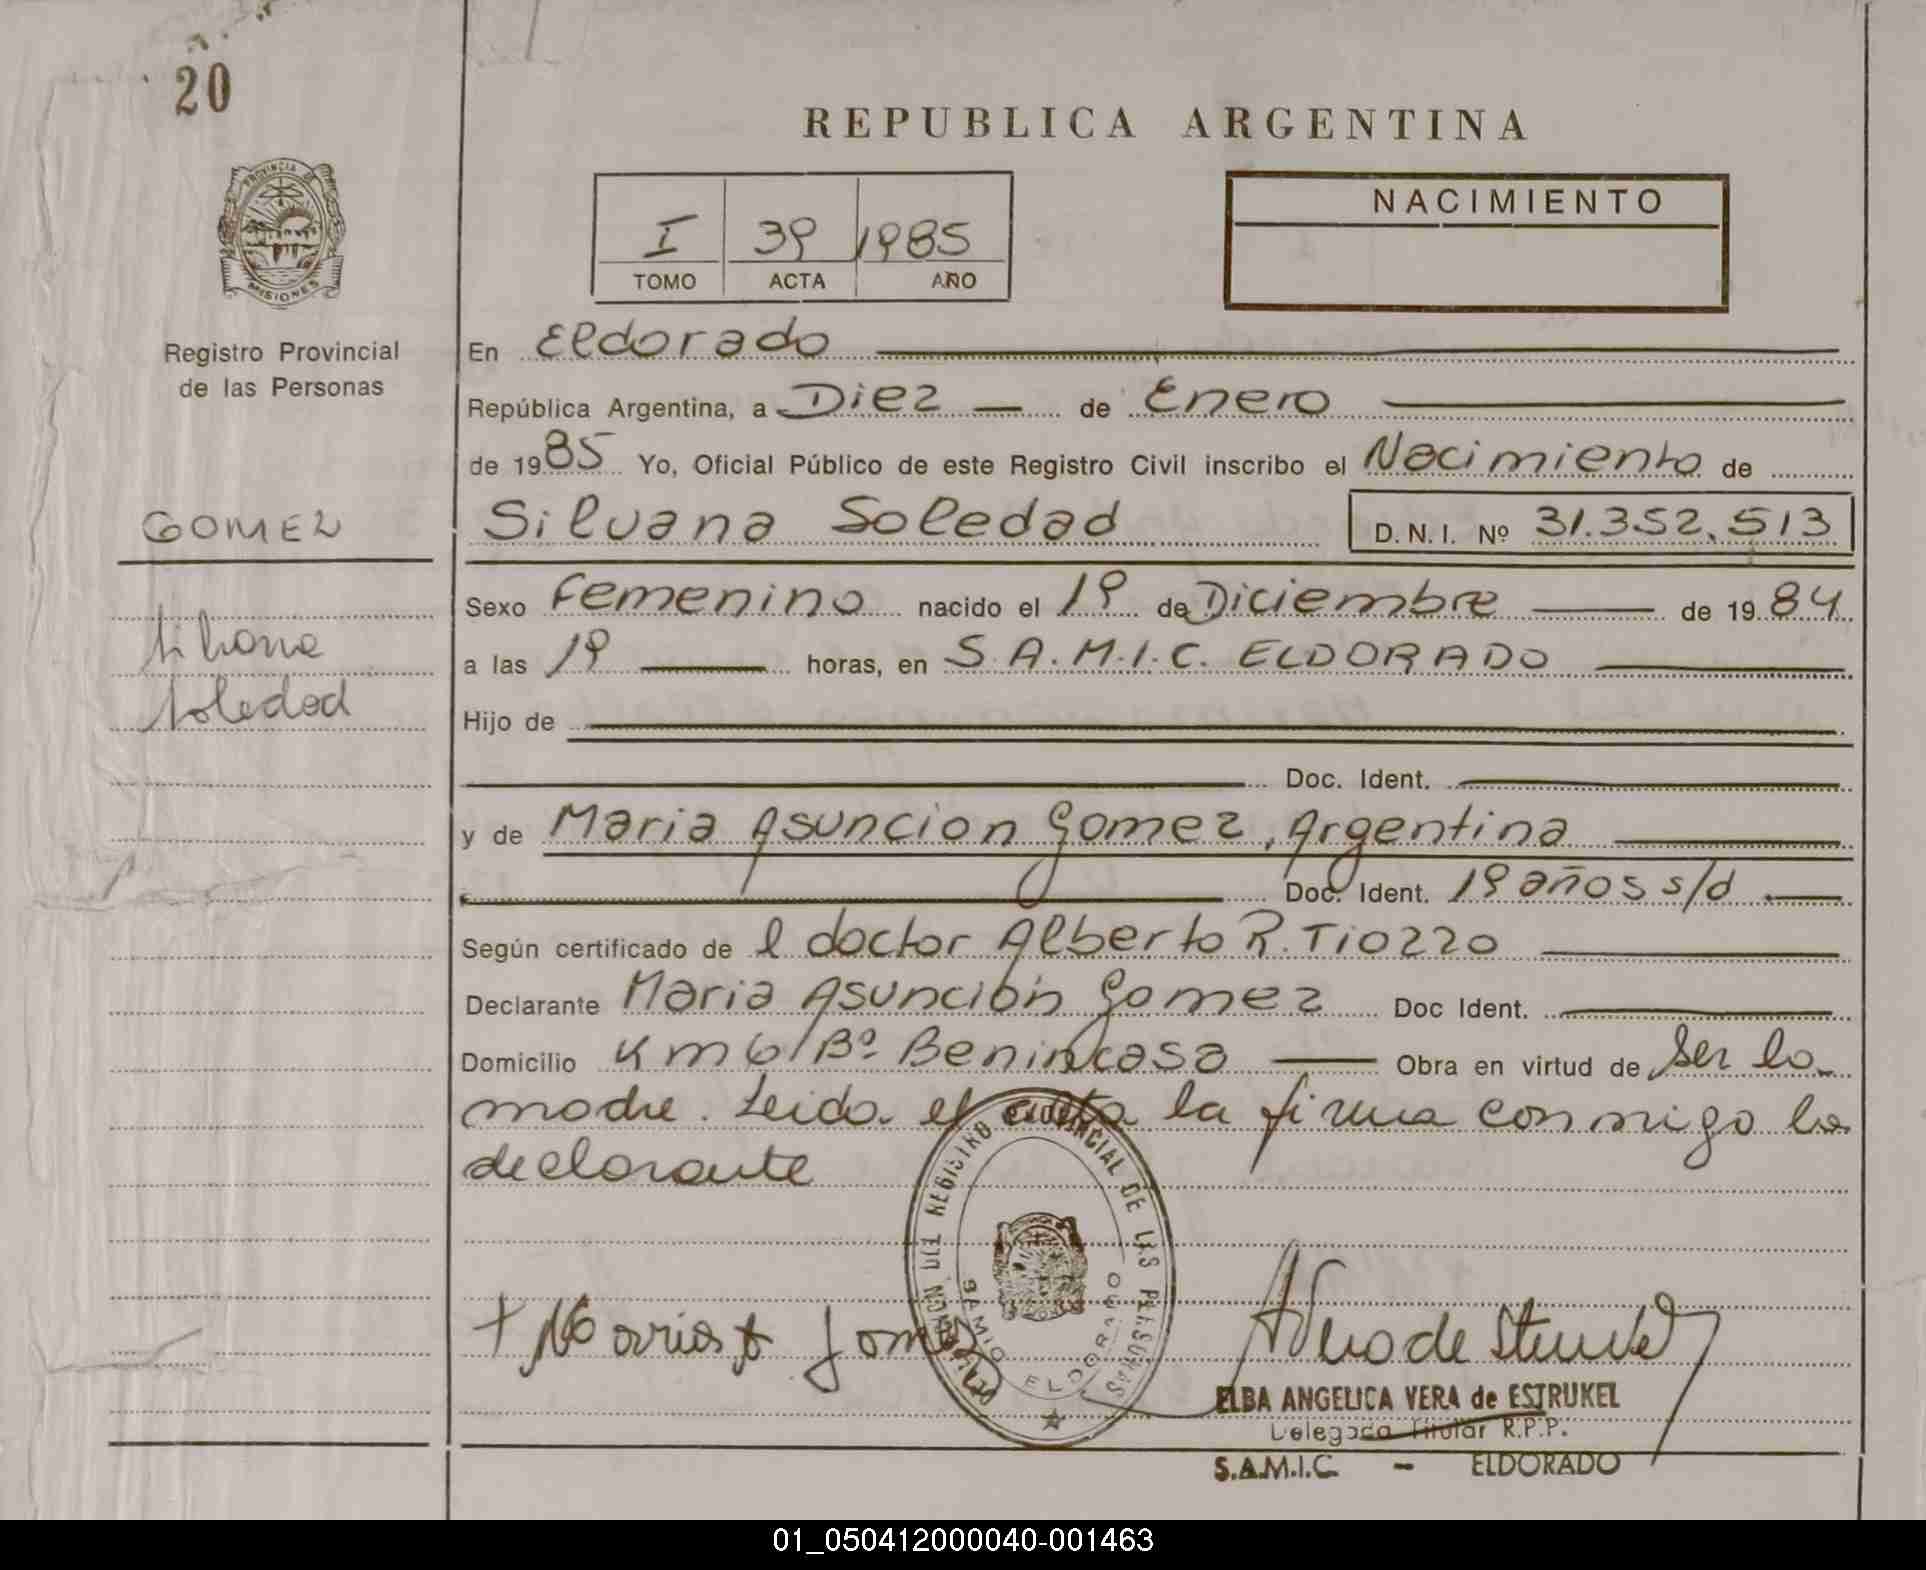 20
REPUBLICA ARGENTINA
PROVINCIA DE
MISIONES
I 39 1985
TOMO ACTA AÑO
NACIMIENTO
Registro Provincial
de las Personas
En Eldorado
República Argentina, a Diez — de Enero
de 1985 Yo, Oficial Público de este Registro Civil inscribo el Nacimiento de
GOMEZ
Silvana Soledad D.N.I. Nº 31.352.513
Sexo Femenino nacido el 19 de Diciembre de 1984
Silvana
a las 19 horas, en S.A.M.I.C. ELDORADO
Soledad
Hijo de
Doc. Ident.
y de Maria Asuncion Gomez, Argentina
Doc. Ident. 19 años s/d.
Según certificado de l doctor Alberto R. Tiozzo
Declarante Maria Asunción Gomez Doc Ident.
Domicilio Km 6 Bº Benincasa Obra en virtud de ser la
madre. Leida el acta la firma conmigo la
declarante
REGISTRO PROVINCIAL DE LAS PERSONAS
ELDORADO
+ Maria A Gomez
AVera de Estrukel
ELBA ANGELICA VERA de ESTRUKEL
Delegada Titular R.P.P.
S.A.M.I.C. - ELDORADO
01_050412000040-001463